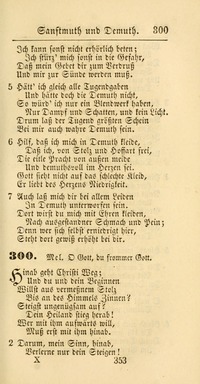 Sanftmuth und Demuth. 300
Ich kann sonst nicht erhörlich beten;
Ich stürz' mich sonst in die Gefahr,
Daß mein Gebet dir zum Verdruß
Und mir zur Sünde werden muß.
5 Hätt' ich gleich alle Tugendgaben
Und hätte doch die Demuth nicht,
So würd' ich nur ein Blendwerk haben,
Nur Dampf und Schatten, und kein Licht.
Drum laß der Tugend größten Schein
Bei mir auch wahre Demuth sein.
6 Hilf, daß ich mich in Demuth kleide,
Daß ich, von Stolz und Hoffart frei,
Die eitle Pracht von außen meide
Und demuthsvoll im Herzen sei.
Gott sieht nicht auf das schlechte Kleid,
Er liebt des Herzens Niedrigkeit.
7 Auch laß mich dir bei allem Leiden
In Demuth unterworfen sein.
Dort wirst du mich mit Ehren kleiden,
Nach ausgestandner Schmach und Pein;
Denn wer sich selbst erniedrigt hier,
Steht dort gewiß erhöht bei dir.
300. Mel. O Gott, du frommer Gott.
Hinab geht Christi Weg;
Und du und dein Beginnen
Willst aus vermeßnem Stolz
Bis an des Himmels Zinnen?
Steigt ungenäht auf?
Dein Heiland stieg herab!
Wer mit ihm aufwärts will,
Muß erst mit ihm hinab.
2 Darum, mein Sinn, hinab,
Verlerne nur dein Steigen!
X 353